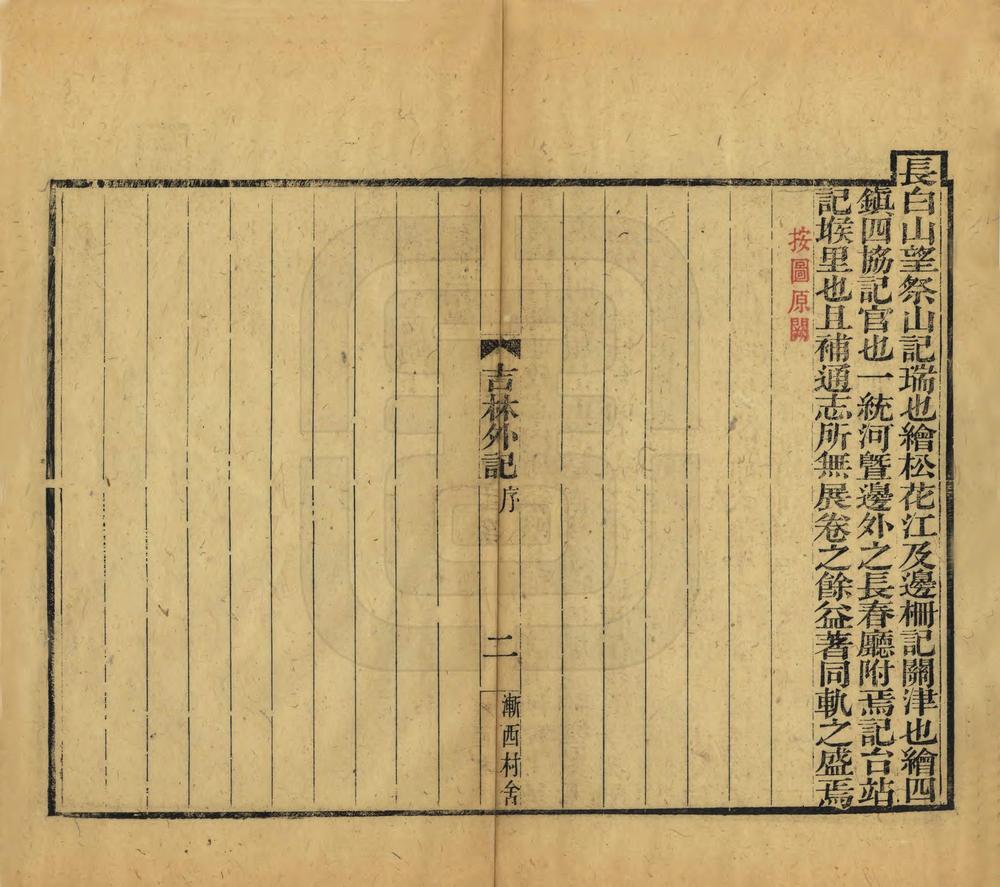 長白山望祭山記瑞也繪松花江及邊柵記關津也繪四
鎮四協記官也一統河暨邊外之長春廳附焉記台站
記堠里也且補通志所無展卷之餘益著同軌之盛焉
按圖原闕
吉林外記 序
二
漸西村舍